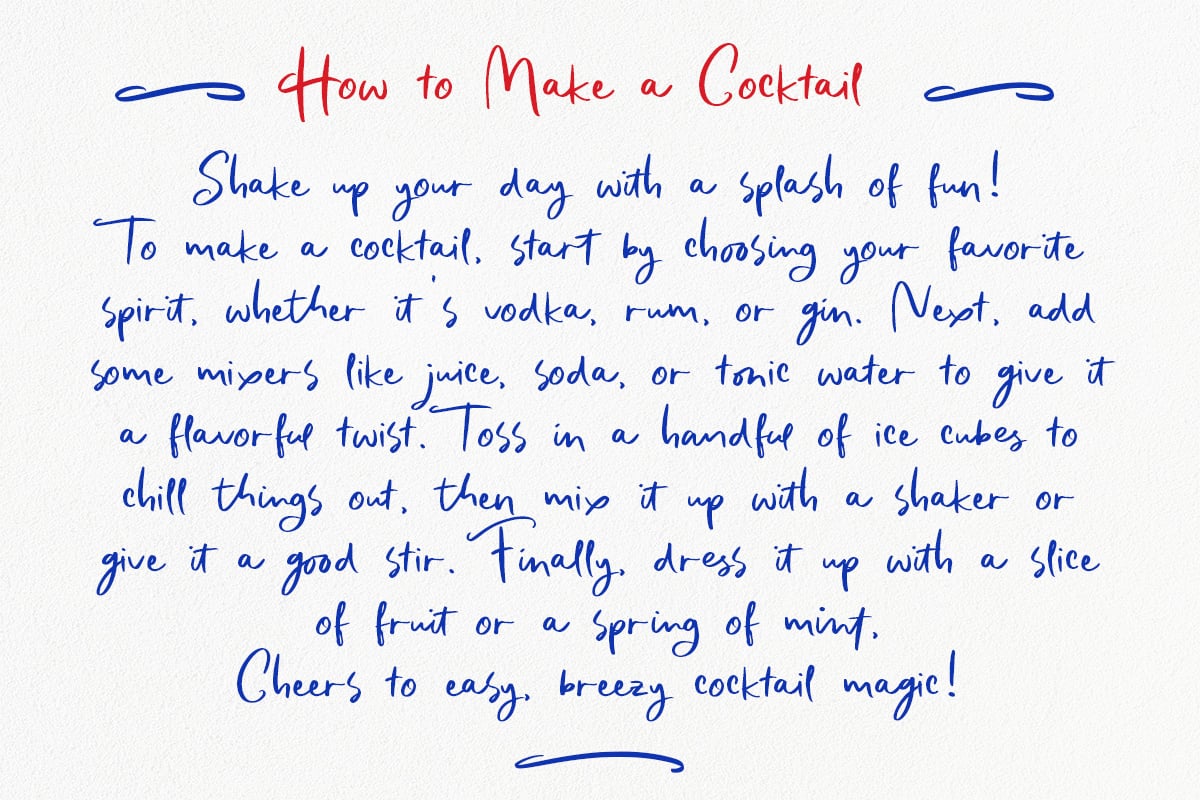 How to Make a Cocktail
Shake up your day with a splash of fun!
To make a cocktail, start by choosing your favorite
spirit, whether it's vodka, rum, or gin. Next, add
some mixers like juice, soda, or tonic water to give it
a flavorful twist. Toss in a handful of ice cubes to
chill things out, then mix it up with a shaker or
give it a good stir. Finally, dress it up with a slice
of fruit or a spring of mint.
Cheers to easy, breezy cocktail magic!